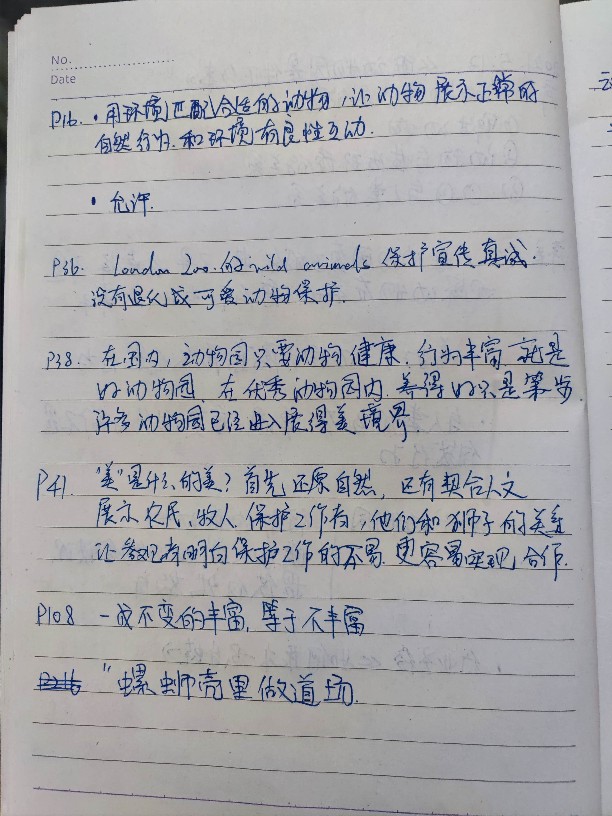 No.
Date
P16. • 用环境匹配合适的动物，让动物展示正常的
自然行为.和环境有良性互动.
• 允许.
P36. London Zoo.的wild animals 保护宣传真诚.
没有退化成可爱动物保护.
P38. 在国内，动物园只要动物健康.行为丰富 就是
好动物园.在优秀动物园内.养得好只是第一步
许多动物园已经进入展得美境界
P41. "美"是什么的美？首先还原自然，还有契合人文
展示农民、牧人.保护工作者，他们和狮子的关系
让参观者明白保护工作的不易.更容易实现合作.
P108 一成不变的丰富，等于不丰富
"螺蛳壳里做道场.